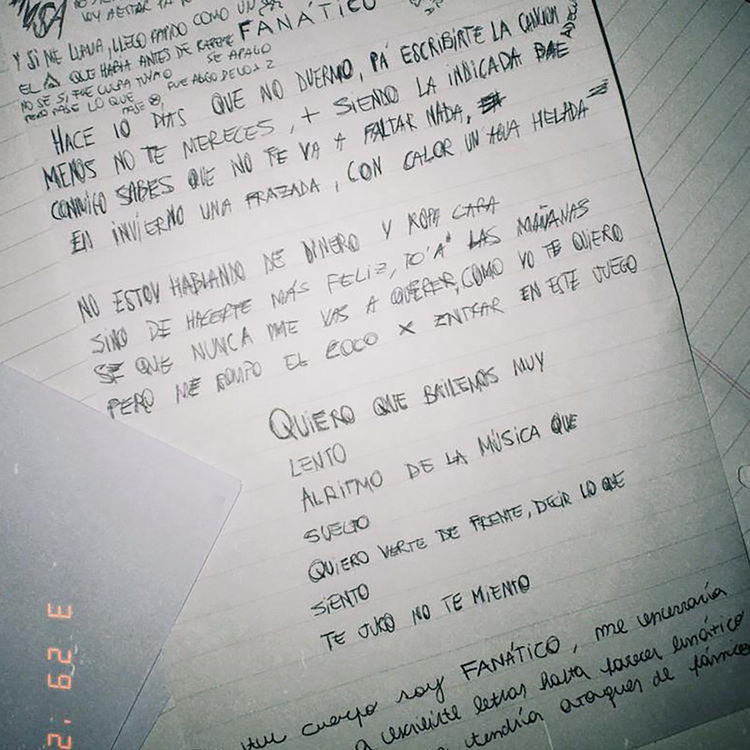 Y SI ME LLAMA, LLEGO RAPIDO COMO UN
FANÁTICO
EL QUE HABIA ANTES DE SE APAGO
NO SE SI FUE CULPA TUYA O FUE ALGO DE LOS 2
PERO PASE LO QUE PASE
HACE 10 DIAS QUE NO DUERMO, PÁ ESCRIBIRTE LA CANCION
MENOS NO TE MERECES, + SIENDO LA INDICADA
CONMIGO SABES QUE NO TE VA A FALTAR NADA,
EN INVIERNO UNA FRAZADA, CON CALOR UN AGUA HELADA
NO ESTOY HABLANDO DE DINERO Y ROPA CARA
SINO DE HACERTE MÁS FELIZ, TO'A' LAS MAÑANAS
SE QUE NUNCA ME VAS A QUERER, COMO YO TE QUIERO
PERO ME ROMPO EL COCO X ENTRAR EN ESTE JUEGO
QUIERO QUE BAILEMOS MUY
LENTO
AL RITMO DE LA MÚSICA QUE
SUELTO
QUIERO VERTE DE FRENTE, DECIR LO QUE
SIENTO
TE JURO NO TE MIENTO
cuerpo soy FANÁTICO, me encerraría
a escribirte letras hasta parecer lunático
tendría ataques de pánico